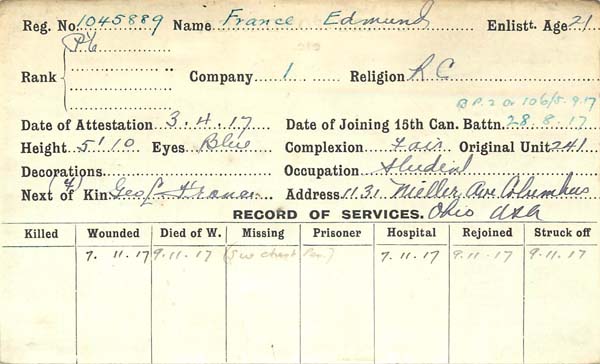 Reg. No. 1045889 Name France Edmund Enlistt. Age 21
Rank { Pte Company 1 Religion R C
B P. 2 O 106/5.9.17
Date of Attestation 3.4.17 Date of Joining 15th Can. Battn. 28.8.17
Height 5' 10 Eyes Blue Complexion Fair Original Unit 241
Decorations Occupation Student
Next of Kin (f) Geo L. France Address 1131 Miller Ave Columbus
RECORD OF SERVICES. Ohio USA
Killed Wounded Died of W. Missing Prisoner Hospital Rejoined Struck off
7. 11. 17 9. 11. 17 (SW chest Pen.) 7. 11. 17 9. 11. 17 9. 11. 17